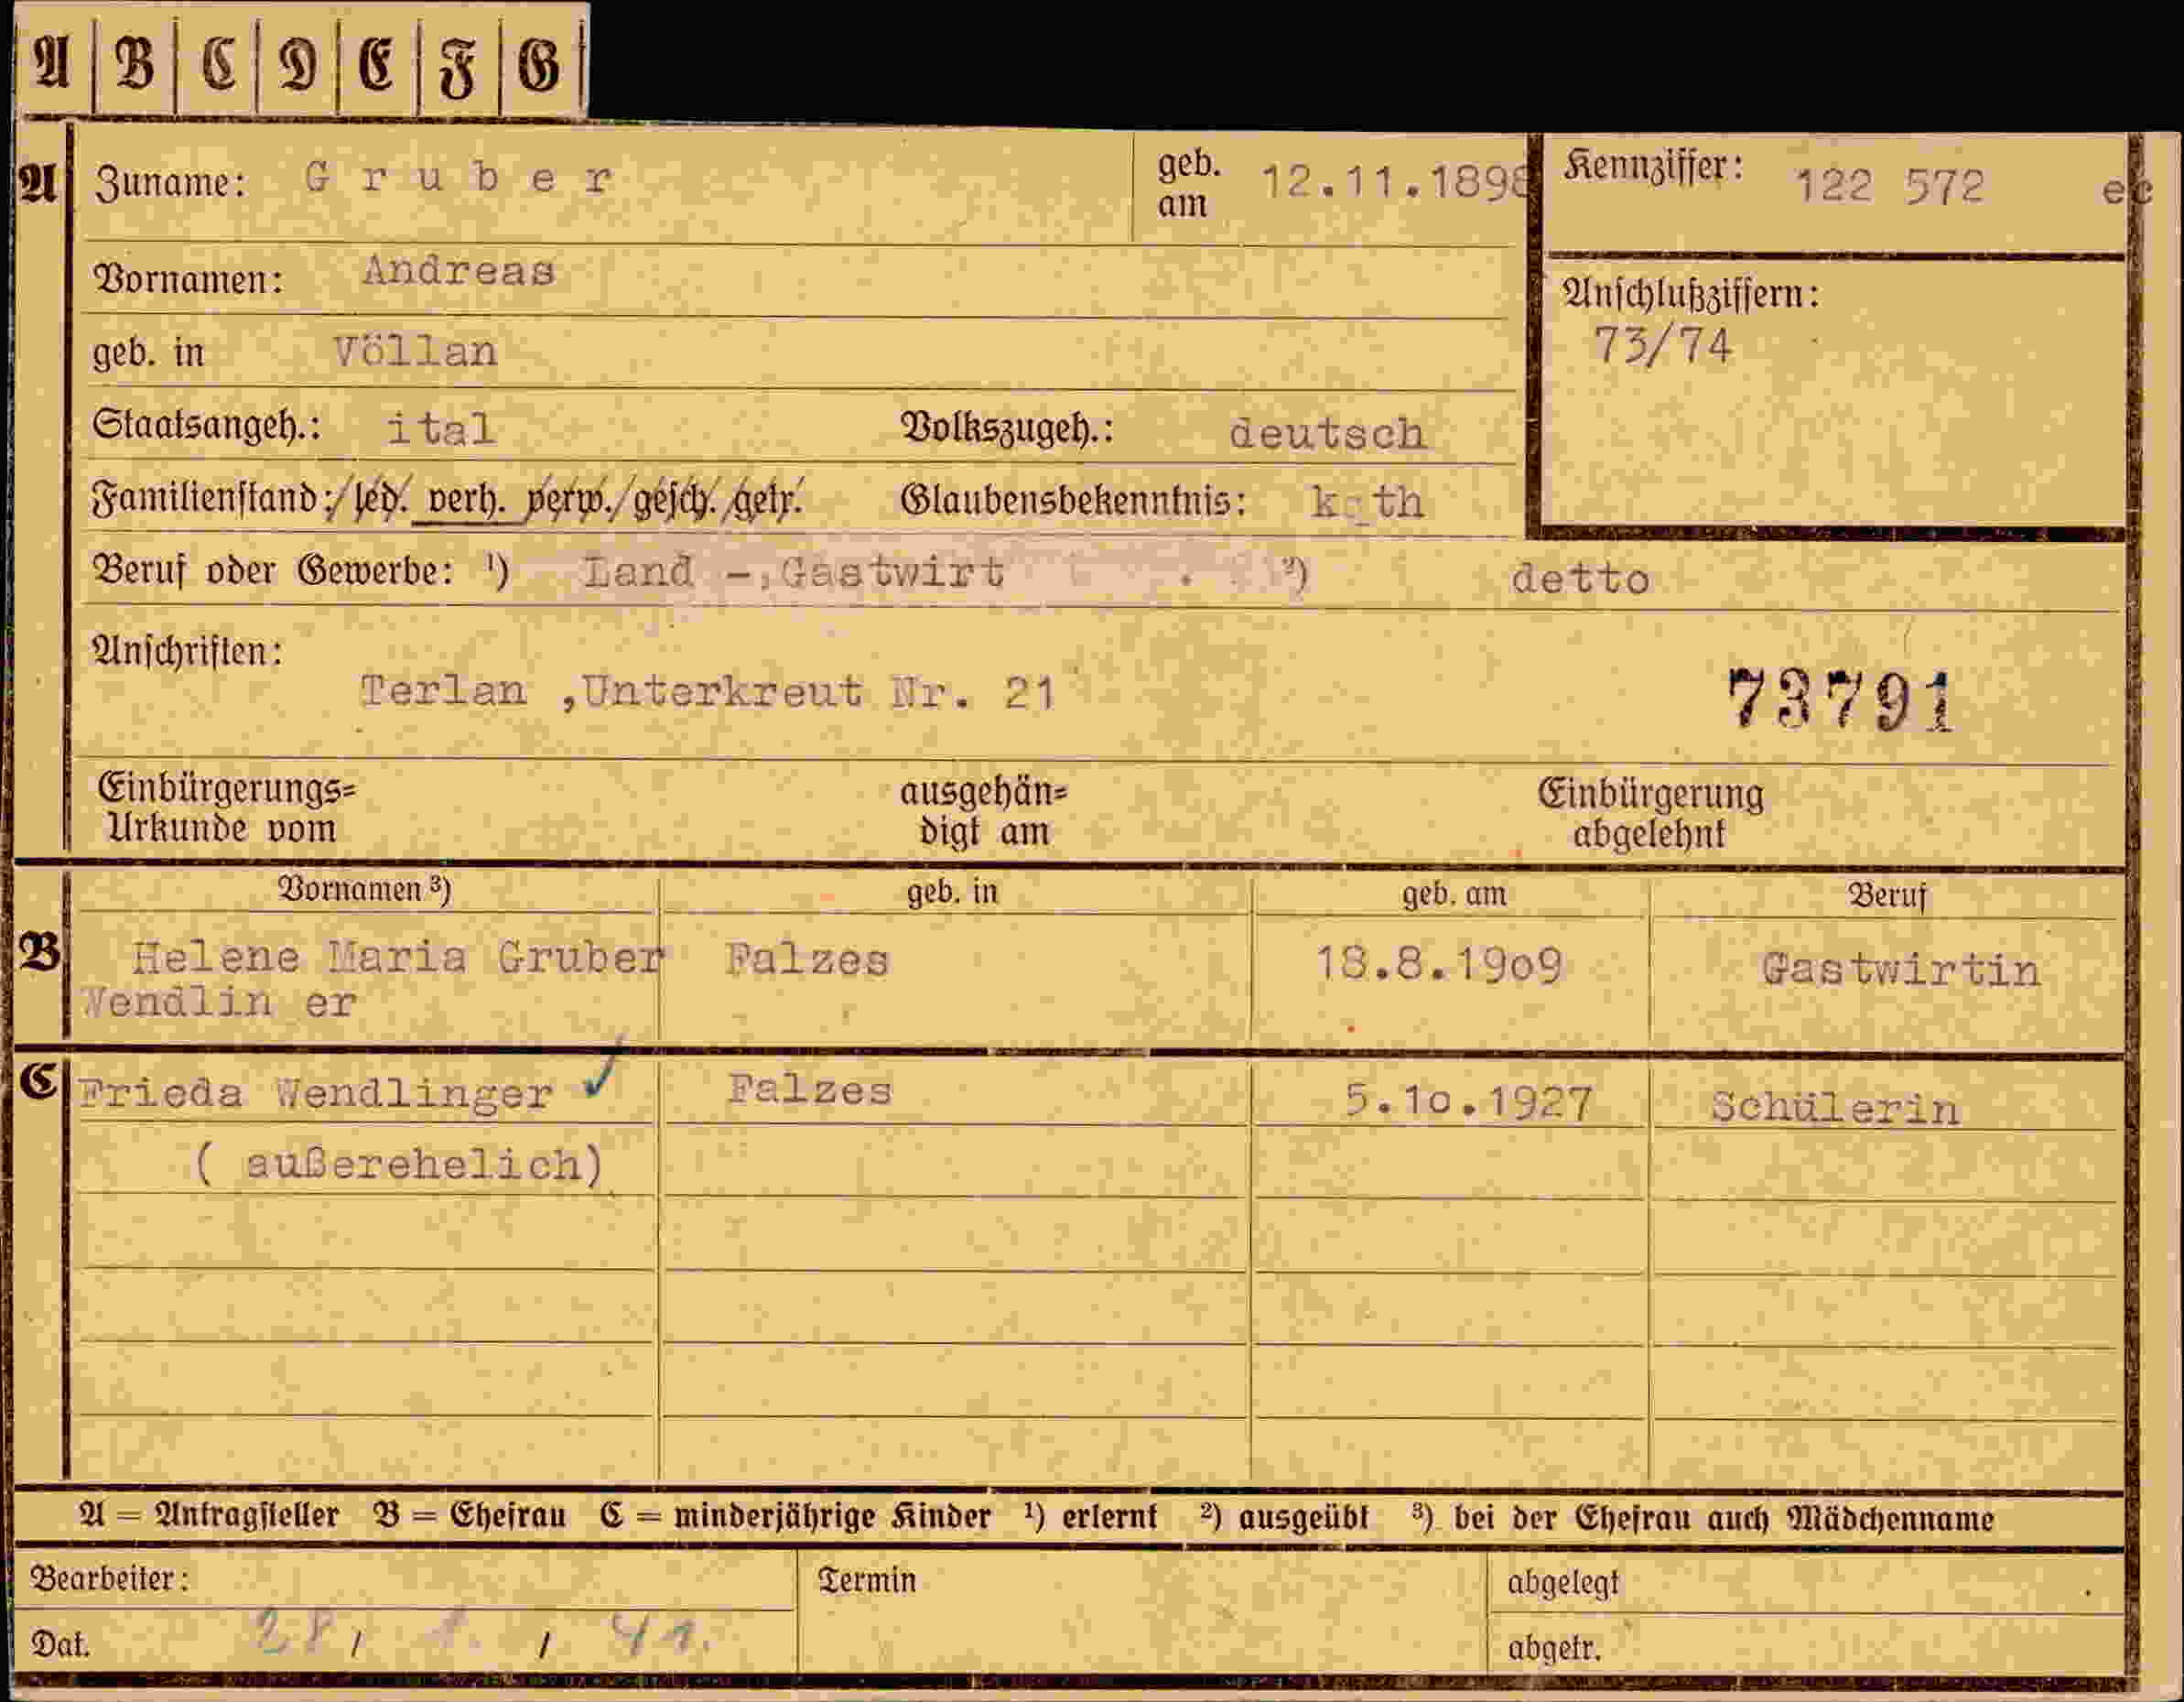 A B C D E F G
A Zuname: Gruber geb. am 12.11.1898 Kennziffer: 122 572 ec
Vornamen: Andreas
Anschlußziffern:
73/74
geb. in Völlan
Staatsangeh.: ital Volkszugeh.: deutsch
Familienstand: led. verh. verw. gesch. getr. Glaubensbekenntnis: kath
Beruf oder Gewerbe: ¹) Land -,Gastwirt ²) detto
Anschriften:
Terlan ,Unterkreut Nr. 21
73791
Einbürgerungs= ausgehän= Einbürgerung
Urkunde vom digt am abgelehnt
Vornamen ³) geb. in geb. am Beruf
B Helene Maria Gruber Falzes 18.8.1909 Gastwirtin
Wendlin er
C Frieda Wendlinger Falzes 5.10.1927 Schülerin
( außerehelich)
A = Antragsteller B = Ehefrau C = minderjährige Kinder ¹) erlernt ²) ausgeübt ³) bei der Ehefrau auch Mädchenname
Bearbeiter: Termin abgelegt
Dat. 28 / 1. / 41. abgetr.